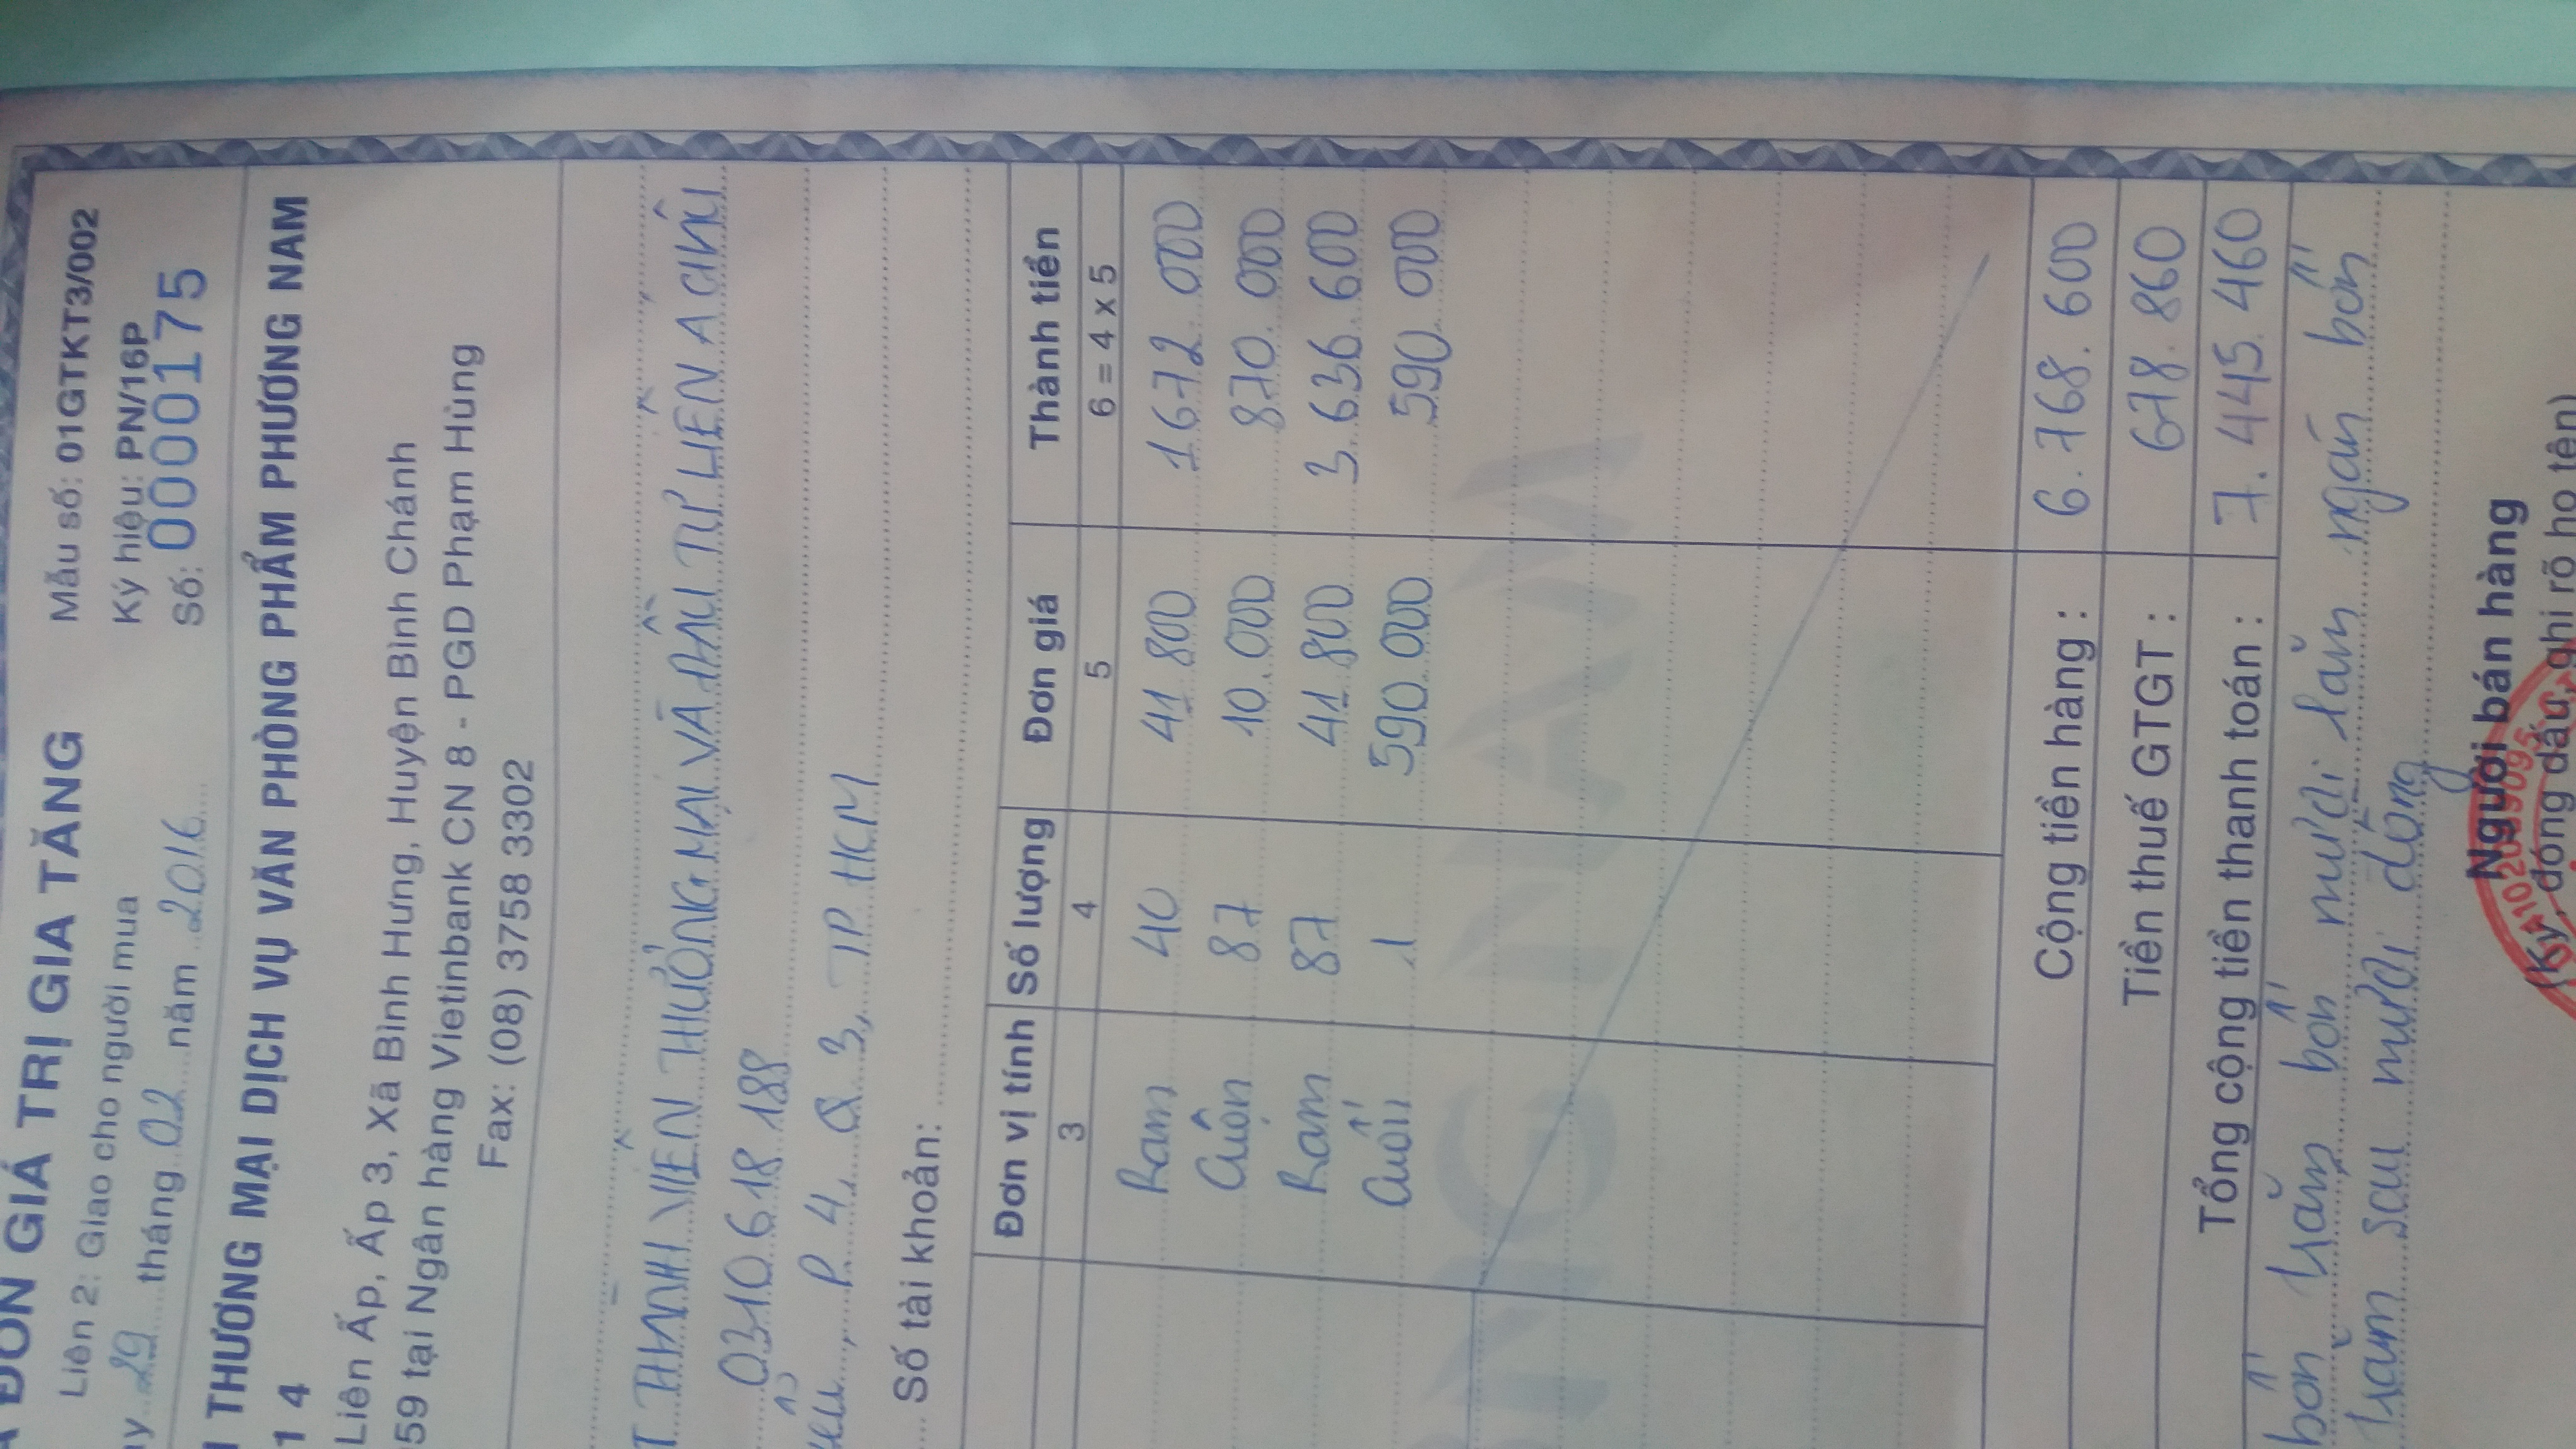 ĐƠN GIÁ TRỊ GIA TĂNG
Mẫu số: 01GTKT3/002
Liên 2: Giao cho người mua
Ký hiệu: PN/16P
29 tháng 02 năm 2016
Số: 0000175
THƯƠNG MẠI DỊCH VỤ VĂN PHÒNG PHẨM PHƯƠNG NAM
1 4
Liên Ấp, Ấp 3, Xã Bình Hưng, Huyện Bình Chánh
959 tại Ngân hàng Vietinbank CN 8 - PGD Phạm Hùng
Fax: (08) 3758 3302
THÀNH VIÊN THƯƠNG MẠI VÀ ĐẦU TƯ LIÊN Á CHÂU
0310618188
P. 4, Q 3, TP HCM
Số tài khoản:
Đơn vị tính Số lượng Đơn giá Thành tiền
3 4 5 6 = 4 x 5
Ram 40 41.800 1672.000
Cuộn 87 10.000 870.000
Ram 87 41.800 3.636.600
Cuốn 1 590.000 590.000
Cộng tiền hàng : 6.768.600
Tiền thuế GTGT : 678.860
Tổng cộng tiền thanh toán : 7.445.460
bốn trăm bốn mươi lăm ngàn bốn
trăm sáu mươi đồng
Người bán hàng
(Ký, đóng dấu, ghi rõ họ tên)